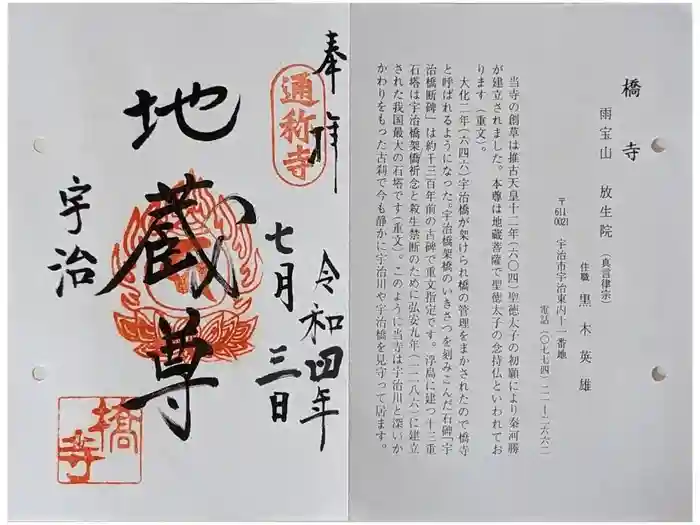 橋寺
雨宝山 放生院 (真言律宗)
住職 黒木英雄
〒611-0021 宇治市宇治東内十一番地
電話 〇七七四(二一)二六六二
当寺の創草は推古天皇十二年(六〇四)聖徳太子の初願により秦河勝
が建立されました。本尊は地蔵菩薩で聖徳太子の念持仏といわれてお
ります(重文)。
大化二年(六四六)宇治橋が架けられ橋の管理をまかされたので橋寺
と呼ばれるようになった。宇治橋架橋のいきさつを刻みこんだ石碑「宇
治橋断碑」は約千三百年前の古碑で重文指定です。浮島に建つ十三重
石塔は宇治橋架橋祈念と殺生禁断のために弘安九年(一二八六)に建立
された我国最大の石塔です(重文)。このように当寺は宇治川と深いか
かわりをもった古刹で今も静かに宇治川や宇治橋を見守って居ます。
奉拝
通称寺
令和四年
七月三日
地蔵尊
宇治
橋寺